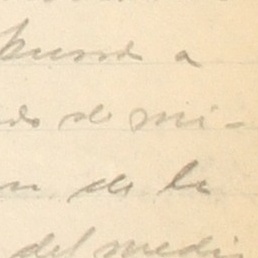 a
do de mi-
n de la
del medio